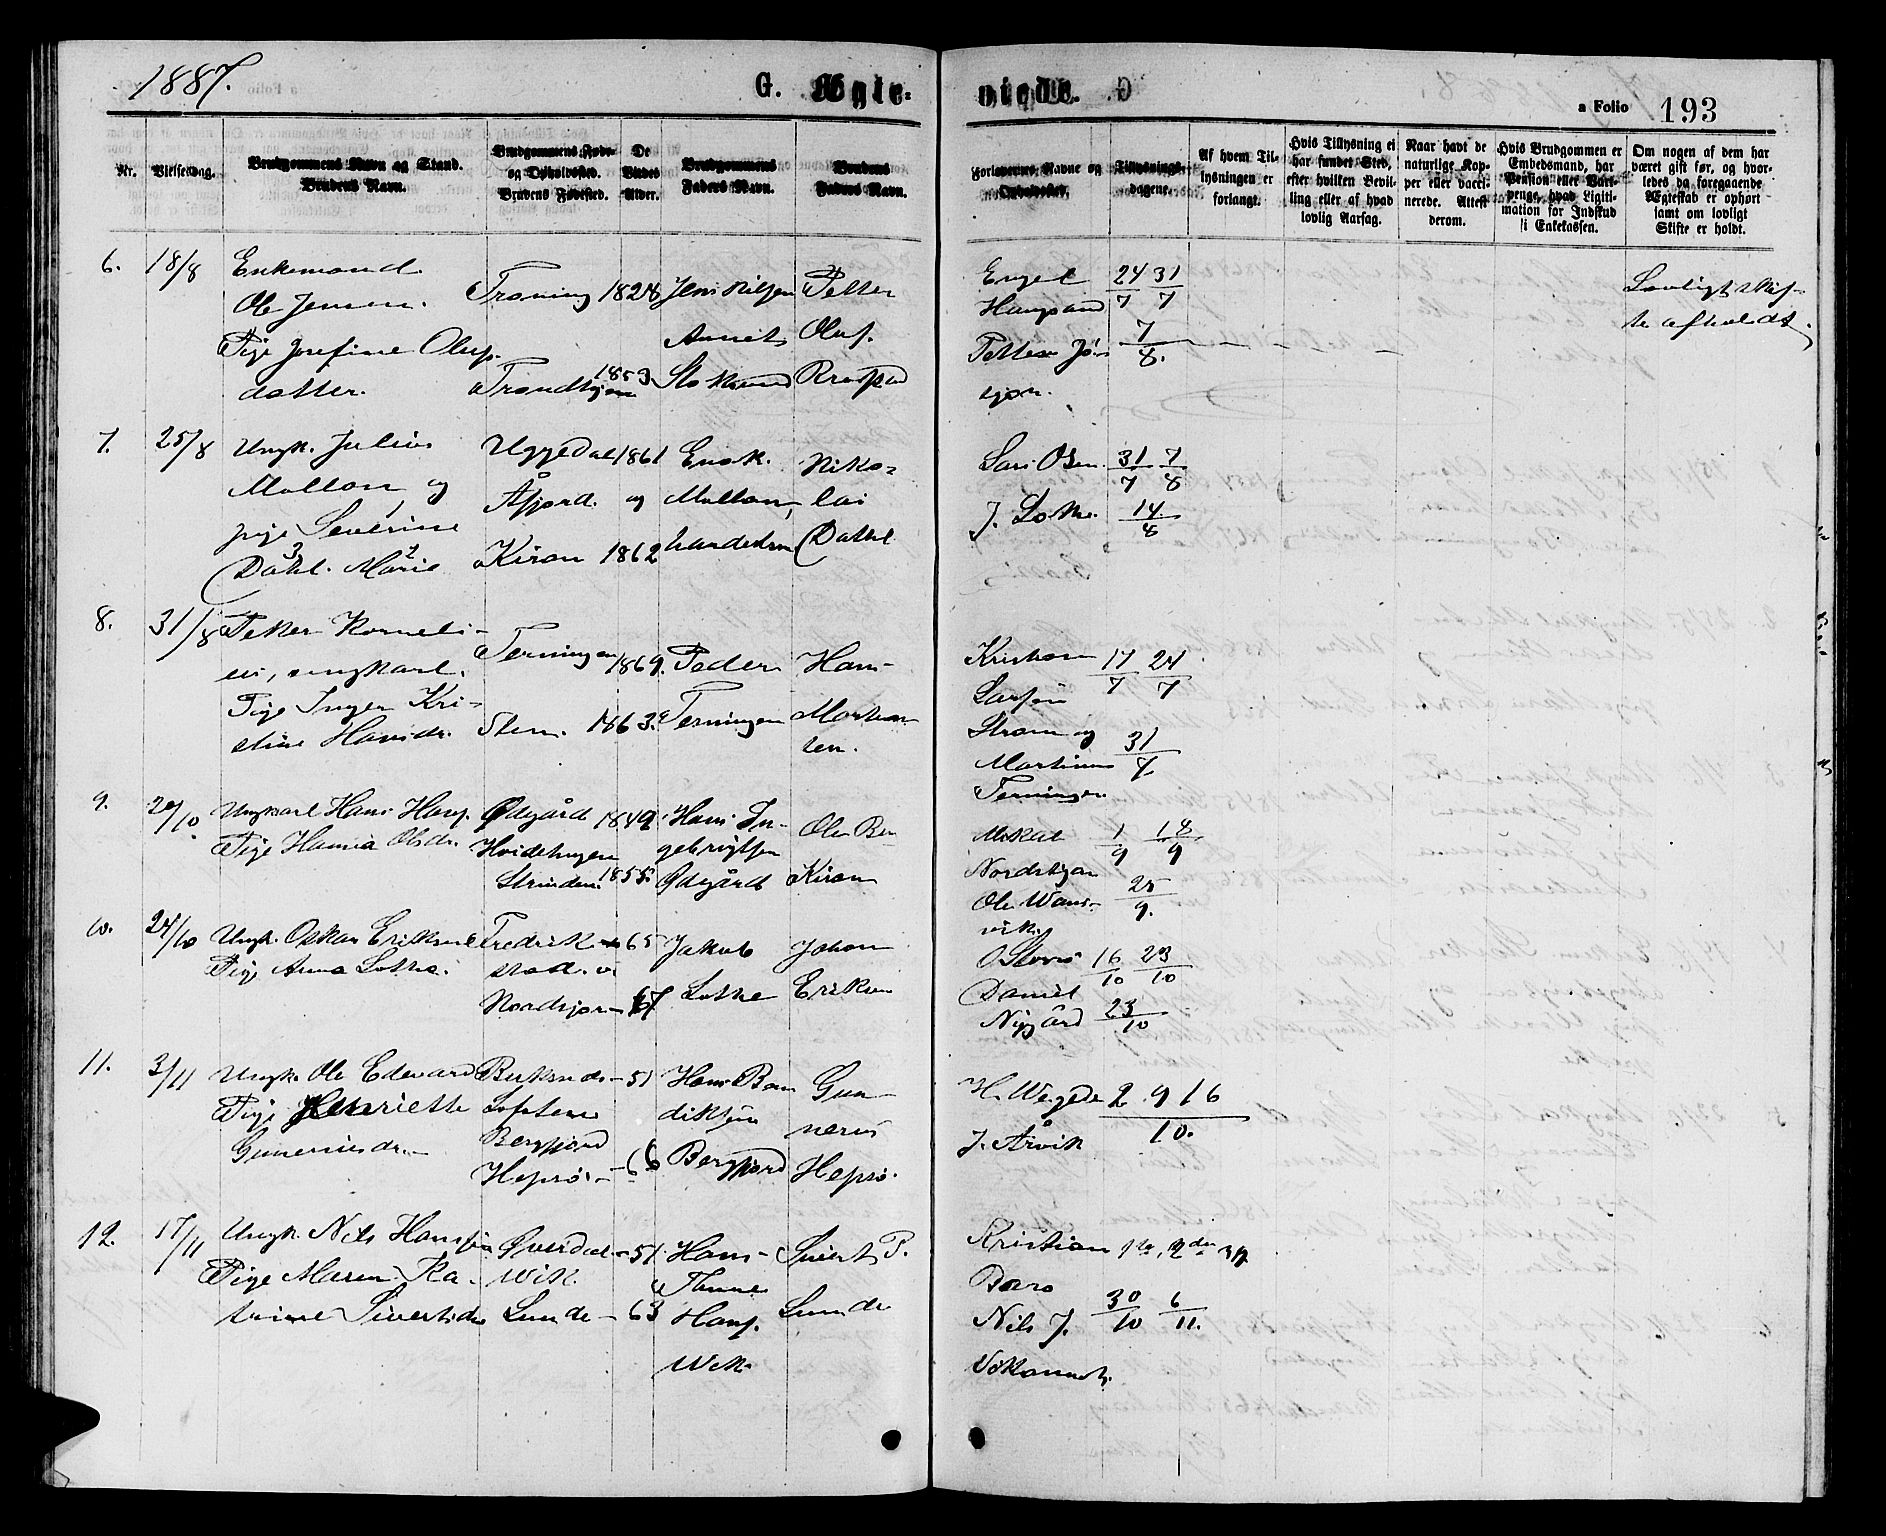 1887.
G. Ægte-
viede.
a Folio 193
Nr.
Vielsesdag.
Brudgommens Navn og Stand.
Brudens Navn.
Brudgommens Føde-
og Opholdssted.
Brudens Fødested.
De
Viedes
Alder.
Brudgommens
Faders Navn.
Brudens
Faders Navn.
Forlovernes Navne og
Opholdssted.
Tillysnings-
dagene.
Af hvem Til-
lysningen er
forlangt.
Hvis Tillysning ei
har fundet Sted,
efter hvilken Bevil-
ling eller af hvad
lovlig Aarsag.
Naar havt de
naturlige Kop-
per eller vacci-
nerede. Attest
derom.
Hvis Brudgommen er
Embedsmand, har
Pension eller Vart-
penge, hvad Ligiti-
mation for Indskud
i Enkekassen.
Om nogen af dem har
været gift før, og hvor-
ledes da foregaaende
Ægteskab er ophørt
samt om lovligt
Skifte er holdt.
6. 18/8 Enkemand
Ole Jensen.
Pige Josefine Olus-
datter.
Trøning 1828
Trondhjem 1853
Jens Nilsen
Stoksund
Petter
Oluf.
Engel
Haugsand
Petter
24/7 31/7
7/8.
Lovligt skif-
te afholdt.
7. 25/8 Ungk. Julius
Mollan, og
pige Severine
Dahl. Marie
3 2
Uggedal 1861
Åfjord. og
Kiran 1862
Enok.
Mollan,
handelsm
Niko-
lai
Dahl
Lars Olsen.
J. Løthe.
31/7 7/8
14/8
8. 31/8 Petter Korneli-
us, ungkarl.
Pige Inger Kri-
stine Hansdr.
Terningen 1869.
Sten. 1863.
Peder
Terningen
Hans
Morten-
sen.
Kristian
Larsen
Strøm og
Martinus
Terningen
17/7 24/7
31/7
9. 20/10 Ungkarl Hans Hans.
Pige Hanna Olsdr.
Ødegård 1849
Strinden. 1855.
Hans In-
gebrigtsen
Ødegård
Ole
Kiran
Mikal
Ole Wans-
vik
1/9 18/9
25/9.
10. 24/10 Ungk. Oskar Eriksen
Pige Anna Løthe.
Fredrik- 65
stad. o.
Nordsjør - 67
Jakob
Løthe
Johan
Eriksen
Daniel
Nygård
16/10 23/10
23/10
11. 3/11 Ungk. Ole Edevard
Pige Henriette
Gunneriusdr.
Buksnes - 51
Lofoten
Bergfjord
Hepsø - 66
Hans Ben
diktsen
Bergfjord
Gun-
nerius
Hepsø.
J. Årvik
2 9 16
10.
12. 17/11 Ungk. Nils Hansen
Pige Maren Ka-
trine Sivertsdr
Øverdal - 51
Wik
Lunde - 63
Hans
Hans.
Wik
Sivert P.
Lunde
Kristian
Nils J.
1ste, 2den
30/10 6/11.